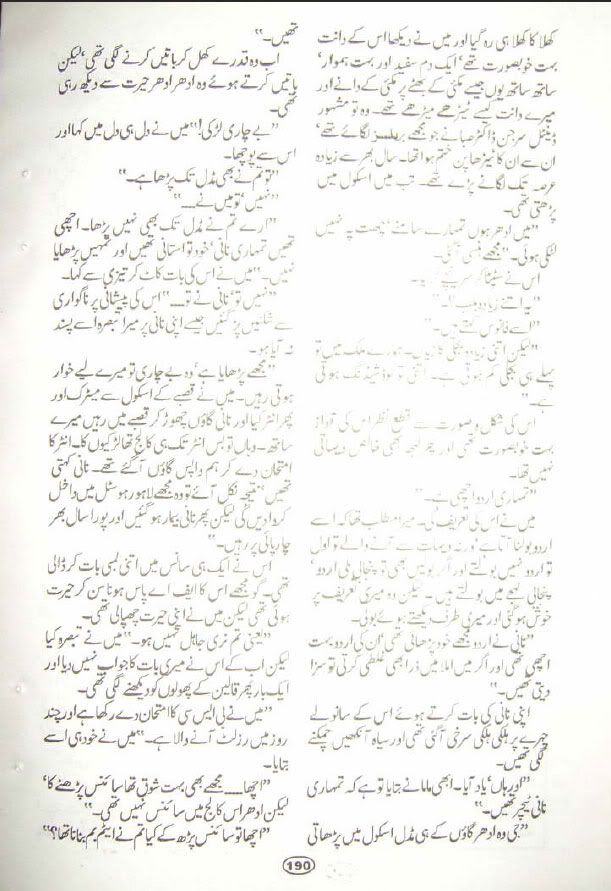 کھلا کا کھلا ہی رہ گیا اور میں نے دیکھا اس کے دانت
بہت خوبصورت تھے' ایک دم سفید اور بہت ہموار'
ساتھ ساتھ یوں جیسے مکئی کے بھٹے پر مکئی کے دانے اور
میرے دانت کیسے ٹیڑھے میڑھے تھے۔ وہ تو مشہور
ڈینٹل سرجن ڈاکٹر صبا نے جو مجھے بریسز لگائے تھے'
ان سے ان کا ٹیڑھا پن ختم ہوا تھا۔ سال بھر سے زیادہ
عرصہ تک لگانے پڑے تھے۔ تب میں اسکول میں
پڑھتی تھی۔
"میں ادھر ہوں تمہارے سامنے' چھت پہ نہیں
لٹکی ہوئی۔" مجھے ہنسی آ گئی۔
اس نے سٹپٹا کر
"یہ اتنے زیادہ بلب!"
"اسے فانوس کہتے ہیں۔"
"لیکن اتنی زیادہ بجلی کا زیاں۔ ہمارے ملک میں تو
پہلے ہی بجلی کم ہوتی ہے۔ اتنی تو لوڈ شیڈنگ ہوتی
ہے۔"
اس کی شکل و صورت سے قطع نظر اس کی آواز
بہت خوبصورت تھی اور پھر لہجہ بھی خالص دیہاتی
نہیں تھا۔
"تمہاری اردو اچھی ہے۔"
میں نے اس کی تعریف کی۔ میرا مطلب تھا کہ اسے
اردو بولنا آتا ہے' ورنہ دیہات سے آنے والے تو اول
تو اردو نہیں بولتے اور اگر بولیں بھی تو پنجابی ملی اردو'
پنجابی لہجے میں بولتے ہیں۔ لیکن وہ میری تعریف پر
خوش ہو گئی اور میری طرف دیکھتے ہوئے بولی۔
"نانی نے اردو مجھے خود پڑھائی تھی' ان کی اردو بہت
اچھی تھی اور اگر میں املا میں ذرا بھی غلطی کرتی تو سزا
دیتی تھیں۔"
اپنی نانی کی بات کرتے ہوئے اس کے سانولے
چہرے پر ہلکی ہلکی سرخی آ گئی تھی اور سیاہ آنکھیں چمکنے
لگی تھیں۔
"اور ہاں' یاد آیا۔ ابھی ماما نے بتایا تو ہے کہ تمہاری
نانی ٹیچر تھیں۔"
"جی وہ ادھر گاؤں کے ہی مڈل اسکول میں پڑھاتی
تھیں۔"
اب وہ قدرے کھل کر باتیں کرنے لگی تھی' لیکن
باتیں کرتے ہوئے وہ ادھر ادھر حیرت سے دیکھ رہی
تھی۔
"بے چاری لڑکی!" میں نے دل ہی دل میں کہا اور
اس سے پوچھا۔
"تو تم نے بھی مڈل تک پڑھا ہے۔"
"نہیں' تو میں نے۔۔۔"
"ارے تم نے مڈل تک بھی نہیں پڑھا۔ اچھی
تھیں تمہاری نانی' خود تو استانی تھیں اور تمہیں پڑھایا
نہیں۔" میں نے اس کی بات کاٹ کر تیزی سے کہا۔
"نہیں تو' نانی نے تو۔۔۔" اس کی پیشانی پر ناگواری
سے شکنیں پڑ گئیں جیسے اپنی نانی پر میرا تبصرہ اسے پسند
نہ آیا ہو۔
"مجھے پڑھایا ہے' وہ بے چاری تو میرے لیے خوار
ہوتی رہیں۔ میں نے قصبے کے اسکول سے میٹرک اور
پھر انٹر کیا اور نانی گاؤں چھوڑ کر قصبے میں رہیں میرے
ساتھ۔ وہاں تو بس انٹر تک ہی کالج تھا لڑکیوں کا۔ انٹر کا
امتحان دے کر ہم واپس گاؤں آ گئے تھے۔ نانی کہتی
تھیں' نتیجہ نکل آئے تو وہ مجھے لاہور ہوسٹل میں داخل
کروا دیں گی لیکن پھر نانی بیمار ہو گئیں اور پورا سال بھر
چارپائی پر رہیں۔"
اس نے ایک ہی سانس میں اتنی لمبی بات کر ڈالی
تھی۔ گو مجھے اس کا ایف اے پاس ہونا سن کر حیرت
ہوئی تھی لیکن میں نے اپنی حیرت چھپالی تھی۔
"یعنی تم نری جاہل نہیں ہو۔" میں نے تبصرہ کیا
لیکن اب کے اس نے میری بات کا جواب نہیں دیا اور
ایک بار پھر قالین کے پھولوں کو دیکھنے لگی تھی۔
"میں نے بی ایس سی کا امتحان دے رکھا ہے اور چند
روز میں رزلٹ آنے والا ہے۔" میں نے خود ہی اسے
بتایا۔
"اچھا۔۔۔ مجھے بھی بہت شوق تھا سائنس پڑھنے کا'
لیکن ادھر اس کالج میں سائنس نہیں تھی۔"
"اچھا تو سائنس پڑھ کے کیا تم نے ایٹم بم بنانا تھا؟"
190